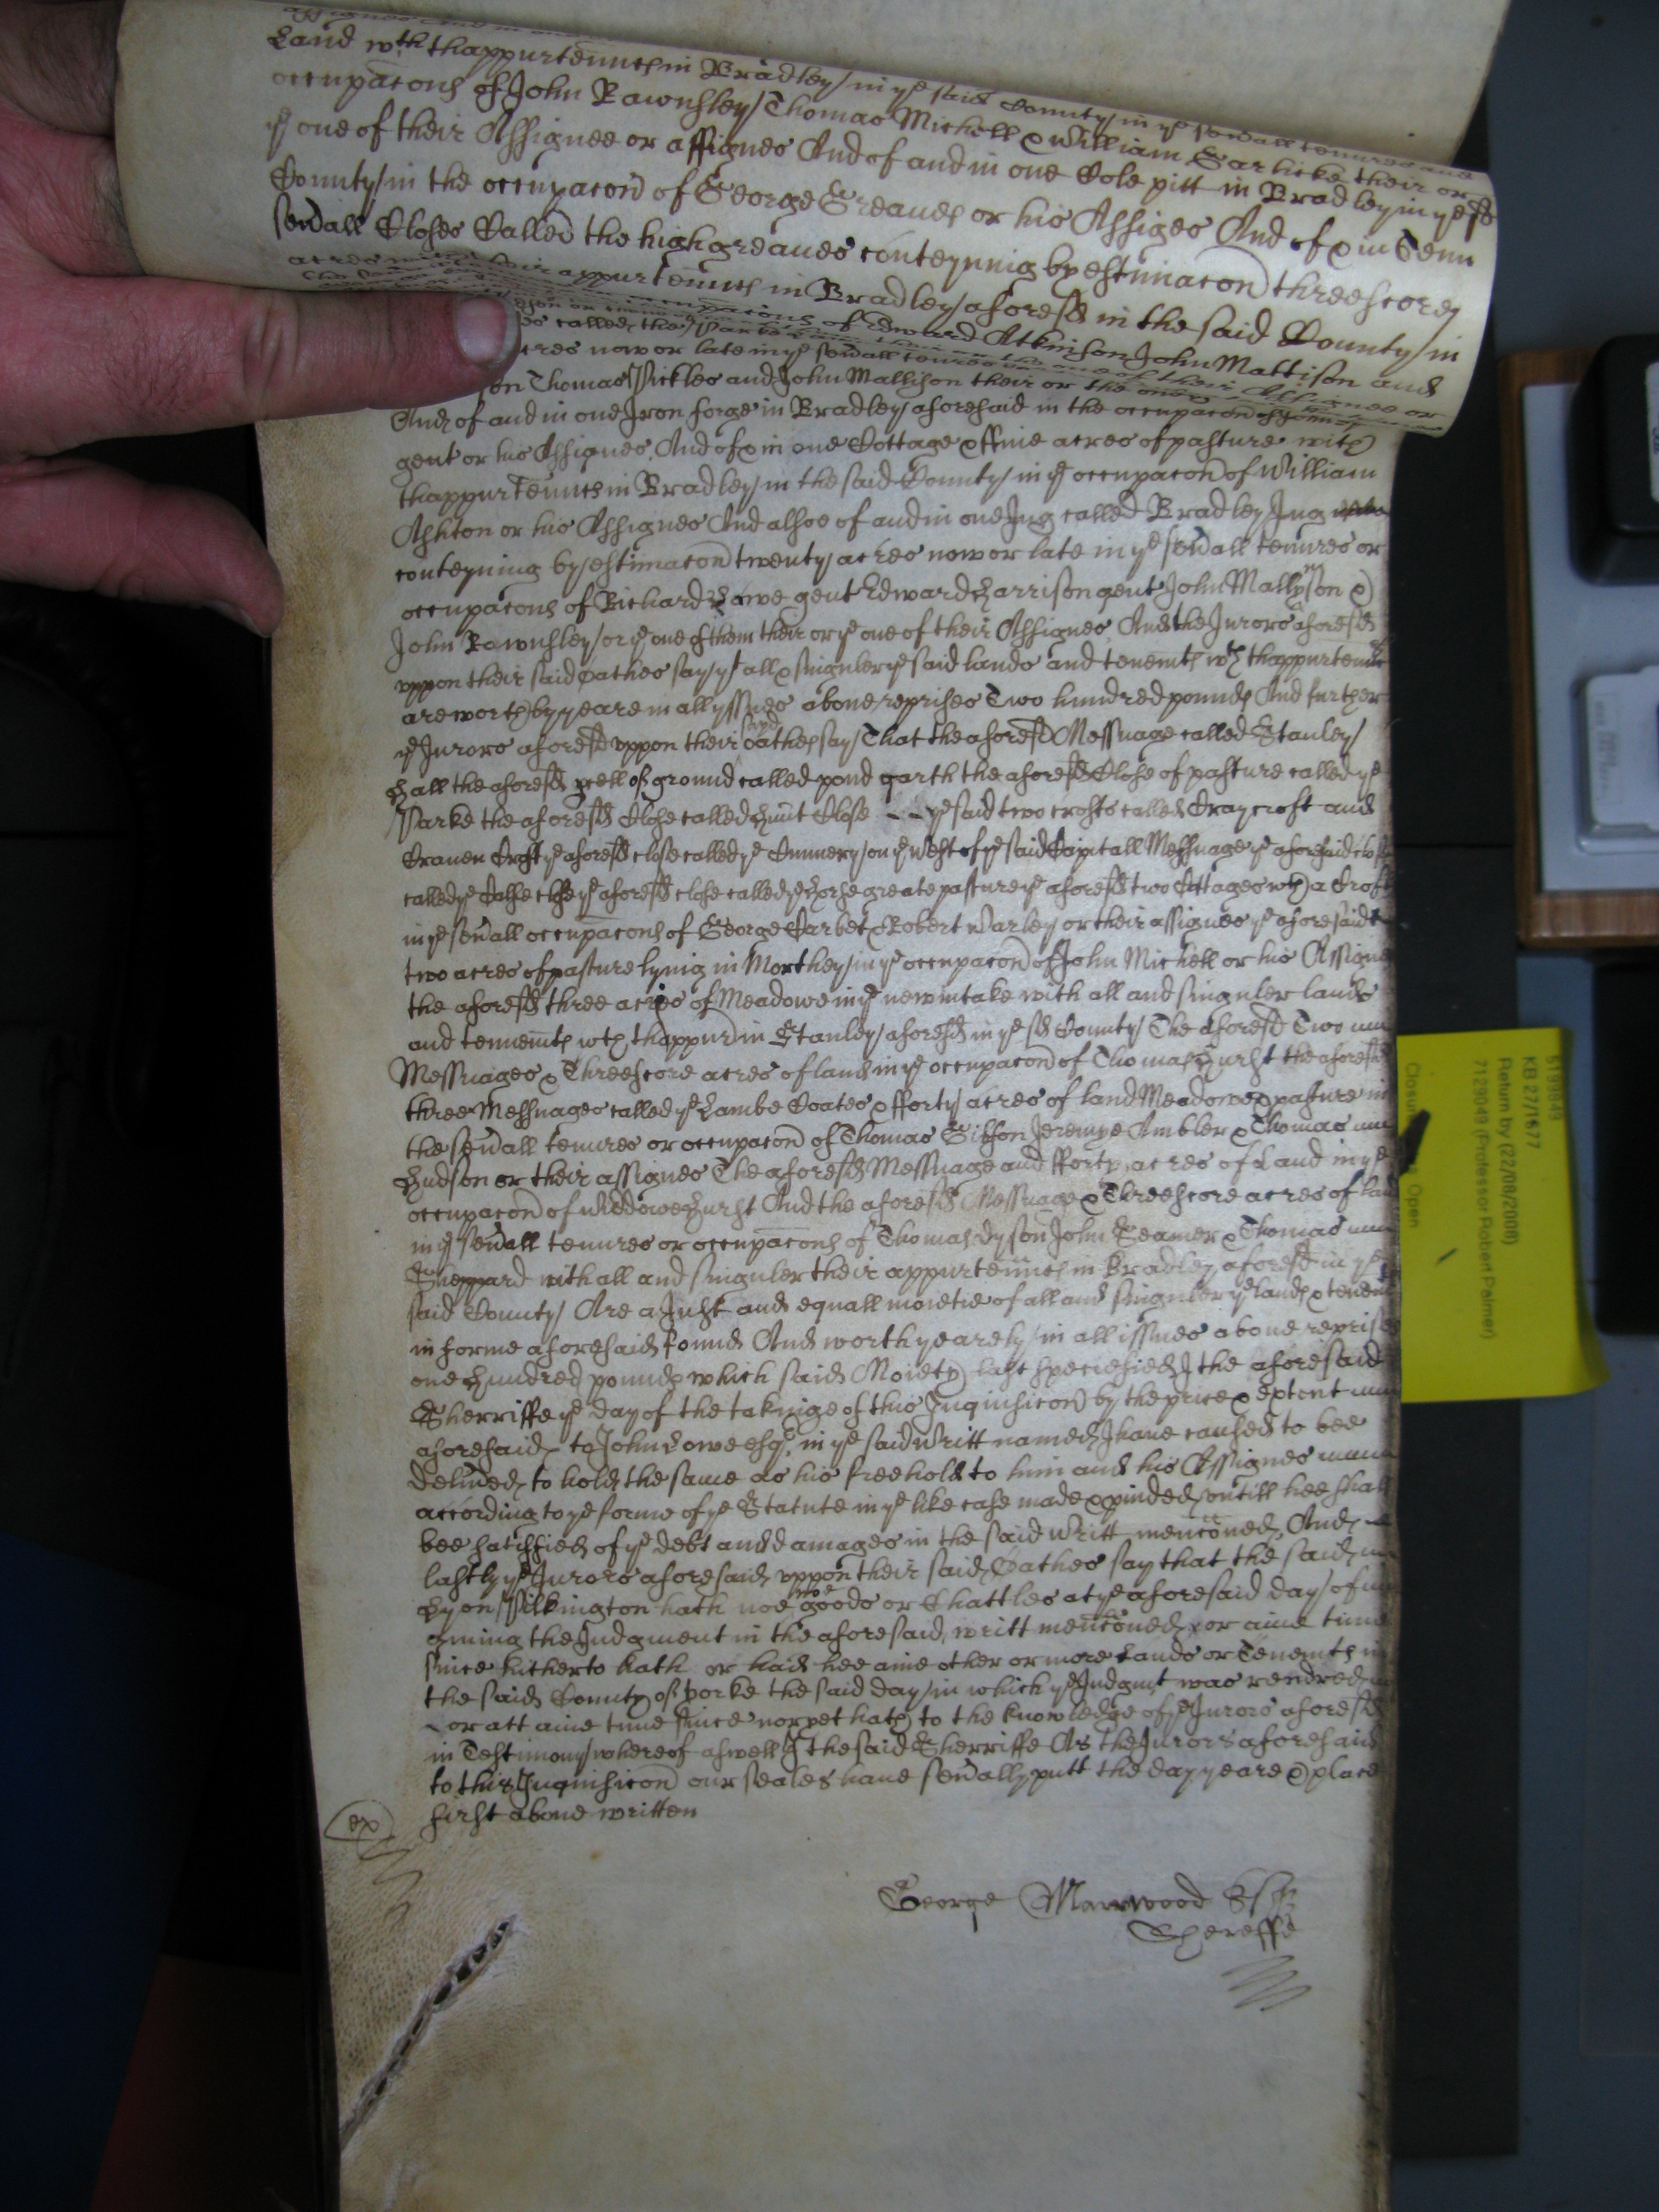 Land wth thappurtennces in Bradley in ye said County in ye seuall tenures and
occupacons of John Rawnsley Thomas Michell & William Garlicke their or
ye one of their Assignee or assignes And of and in one Cole pitt in Bradley in ye sd
County in the occupacon of George Greaues or his Assiges And of & in Tenn
seuall Closes Called the high greaues conteyning by estimacon threescore
acres with their appurtennces in Bradley aforesd in the said County in
occupacons of Edward Atkinson John Mattison and
called the Parke
acres now or late in ye seuall tenures
on Thomas Pickles and John Mallison their or the one of their Assignes or
And of and in one Iron forge in Bradley aforesaid in the occupacon of
gent or his Assignes, And of & in one Cottage & ffiue acres of pasture with
thappurtennces in Bradley in the said County in ye occupacon of William
Ashton or his Assignes And alsoe of and in one Ing called Bradley Ing
conteyning by estimacon twenty acres now or late in ye seuall tenures or
occupacons of Richard Lowe gent Edward Harrison gent John Mallynson &
John Rawnsley or ye one of them their or ye one of their Assignes, And the Jurors aforesd
vppon their said Oathes say yt all & singuler ye said lands and tenemts wth thappurtennces
are worth by yeare in all yssues aboue reprises Two hundred pounds And further
ye Jurors aforesd vppon their said oathes say That the aforesd Messuage called Stanley
Hall the aforesd pcell of ground called pond garth the aforesd Close of pasture called ye
Parke the aforesd Close called Hunt Close -- ye said two crofts called Craycroft and
Crauen Croft ye aforesd close called ye Cunnery on ye West of ye said Capitall Messuage ye aforesaid close
called ye Calfe close ye aforesd close called ye Horse greate pasture ye aforesd two Cottages wth a Croft
in ye seuall occupacons of George Carbet & Robert Warley or their assignes ye aforesaid
two acres of pasture lying in Morthey in ye occupacon of John Michell or his Assignes
the aforesd three acres of Meadowe in ye newintake with all and singuler lands
and tennemts wth thappur in Stanley aforesd in ye sd County The aforesd Two
Messuages & Threescore acres of land in ye occupacon of Thomas Hurst the aforesd
three Messuages called ye Lambe Coates & fforty acres of land Meadowe & pasture in
the seuall tenures or occupacon of Thomas Gibson Jeremye Ambler & Thomas
Hudson or their assignes The aforesd Messuage and fforty acres of Land in ye
occupacon of Widdowe Hurst And the aforesd Messuage & Threescore acres of land
in ye seuall tenures or occupacons of Thomas Dyson John Seamer & Thomas
Sheppard with all and singuler their appurtennces in Bradley aforesd in ye
said County Are a Just and equall moietie of all and singuler ye lands & tenemts
in forme aforesaid found And worth yearely in all issues aboue reprises
one Hundred pounds which said Moiety last specified I the aforesaid
Sherriffe ye day of the takinge of this Inquisicon by the price & extent
aforesaid to John Lowe esqr, in ye said Writt named I haue caused to bee
deliued to hold the same as his freehold to him and his Assignes
according to ye forme of ye Statute in ye like case made & puided vntill hee shall
bee satisfied of ye debt and damages in the said Writt menconed, And
lastly ye Jurors aforesaid vppon their said Oathes say that the said
Lyon Pilkington hath noe more goods or Chattles at ye aforesaid day of
giuing the Judgment in the aforesaid writt menconed, or anie time
since hitherto hath or had hee anie other or more Lands or Tenemts in
the said County of Yorke the said day in which ye Judgmt was rendred
or att anie time since nor yet hath to the knowledge of ye Jurors aforesd
in Testimony whereof aswell I the said Sherriffe As the Jurors aforesaid
to this Inquisicon our seales haue seually putt the day yeare & place
first aboue written
ex
George Marwood Esqr
Shereffe
5199849
KB 27/1677
Return by (22/08/2008)
7129049 (Professor Robert Palmer)
Open